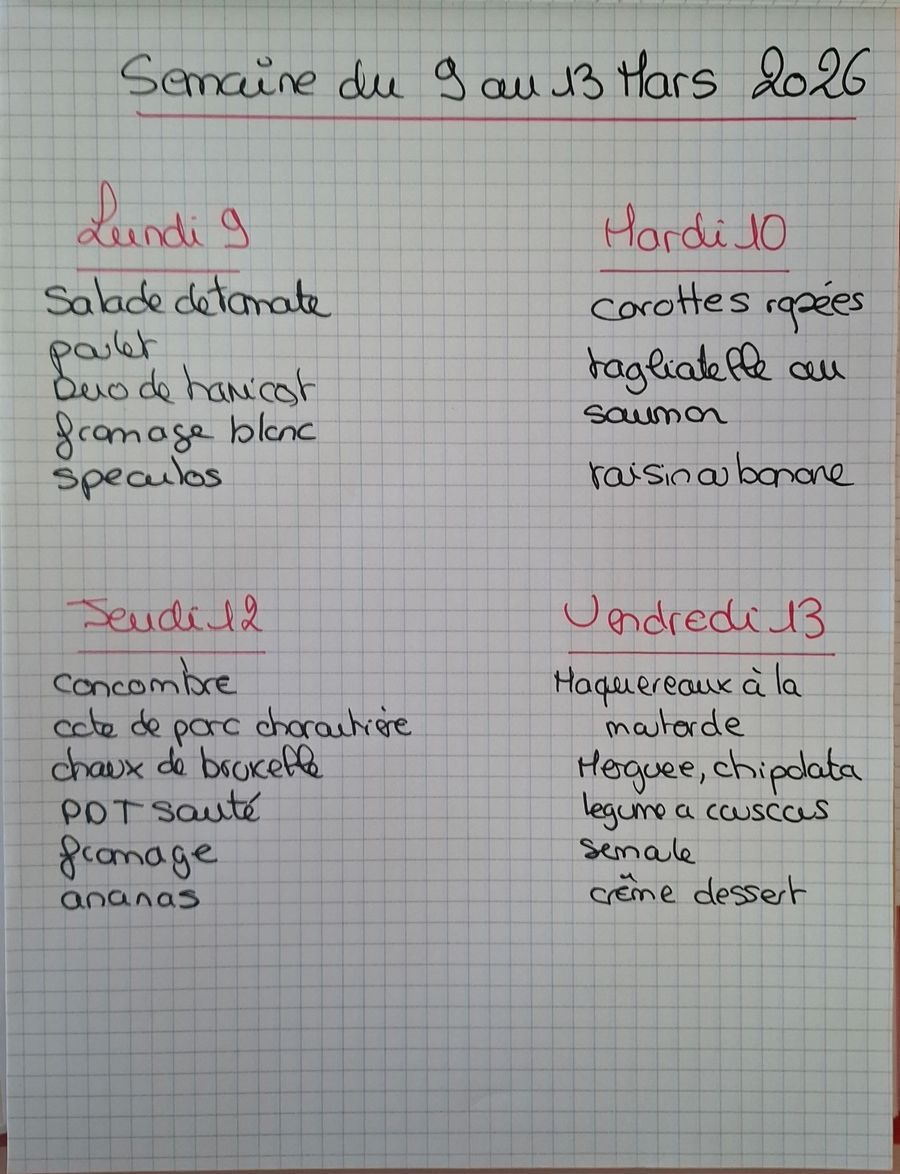 Semaine du 9 au 13 Mars 2026
Lundi 9
Salade de tomate
poulet
Duo de haricot
fromage blanc
speculos
Mardi 10
carottes rapées
tagliatelle au
saumon
raisin ou banane
Jeudi 12
concombre
cote de porc charcutière
choux de bruxelle
PDT sauté
fromage
ananas
Vendredi 13
Maquereaux à la
moutarde
Merguee, chipolata
legume a couscous
semoule
crême dessert